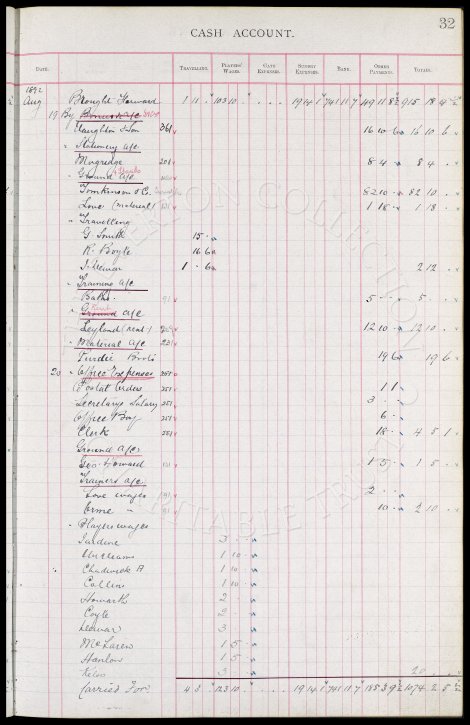 32
CASH ACCOUNT.
DATE. TRAVELLING. PLAYERS' WAGES. GATE EXPENSES. SUNDRY EXPENSES. BANK. OTHER PAYMENTS. TOTALS.
1892
Aug Brought Forward 1 11 103 10 19 14 1 741 11 7 49 11 8 915 18 4
19 By a/c
Haughton & Son 361 16 10 6 16 10 6
" Stationery a/c
Mugridge 201 8 4 8 4
" Ground a/c
Tomkinson & C. 82 10 82 10
Love (material) 1 18 1 18
" Travelling
G. Smith 15
R. Boyle 16 6
J. Elewar 1 6 2 12
" Training a/c
Baths 91 5 5
" Ground Rent a/c
Leyland (rent) 12 10 12 10
" Material a/c 231
Purdie Boots 19 6 19 6
20 " Office Expenses 251
Postal Orders 251 1 1
Secretary Salary 251 3
Office Boy 251 6
Clerk 251 18 4 5 1
Ground a/c
Geo. Howard 1 5 1 5
Trainers a/c
Love wages 191 2
Orme " 91 10 2 10
" Players wages
Jardine 3
Williams 1 10
Chadwick A 1 10
Collins 1 10
Howarth 2
Coyle 2
Elewar 3
McLaren 1 5
Hanlon 1 5
Kelso 3 20
Carried For. 4 3 123 10 19 14 1 741 11 7 185 3 9 1074 2 5
EVERTON COLLECTION CHARITABLE TRUST